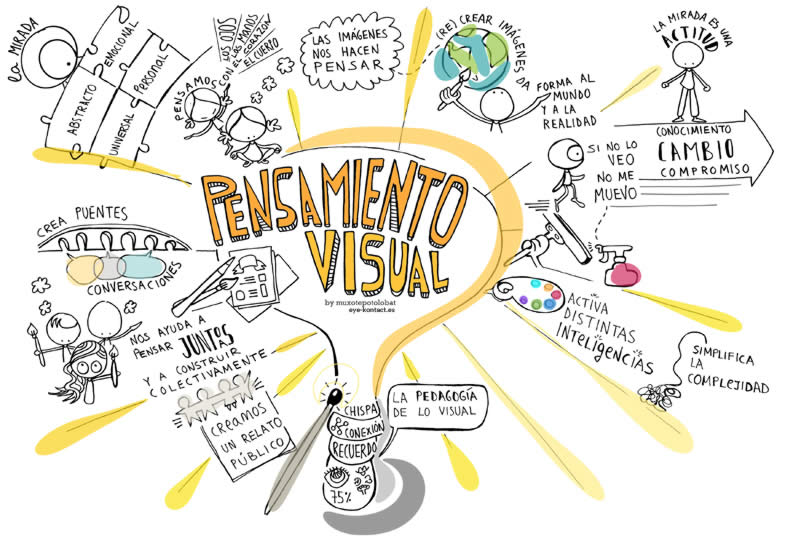 PENSAMIENTO
VISUAL
by muxotepotolobat
eye-kontact.es
la MIRADA
EMOCIONAL
Personal
ABSTRACTO
UNIVERSAL
PENSAMOS
CON
LOS OJOS
LAS MANOS
EL CORAZÓN
EL CUERPO
LAS IMÁGENES
NOS HACEN
PENSAR
(RE)CREAR IMÁGENES DA
FORMA AL
MUNDO
Y A LA
REALIDAD
LA MIRADA ES UNA
ACTITUD
CONOCIMIENTO
CAMBIO
COMPROMISO
SI NO LO
VEO
NO ME
MUEVO
ACTIVA
DISTINTAS
INTELIGENCIAS
SIMPLIFICA
LA
COMPLEJIDAD
CREA PUENTES
CONVERSACIONES
NOS AYUDA A
PENSAR JUNTAS
Y A CONSTRUIR
COLECTIVAMENTE
CREAMOS
UN RELATO
PÚBLICO
LA PEDAGOGÍA
DE LO VISUAL
CHISPA
CONEXIÓN
RECUERDO
75%